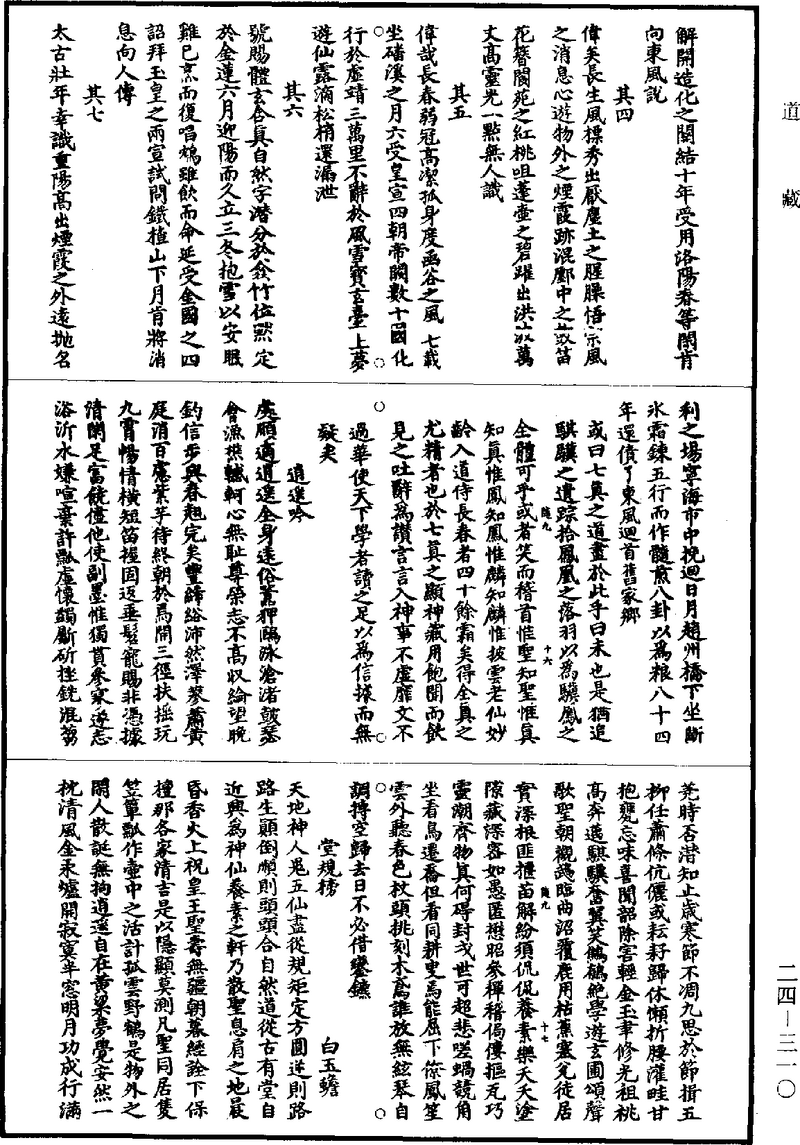 道藏
解開造化之關結十年受用洛陽春等閑肯
向東風說
其四
偉矣長生風標秀出厭塵土之腥臊悟宗風
之消息心遊物外之煙霞跡混鄽中之鼓笛
花簪閬苑之紅桃咀蓬壺之碧躍出洪波萬
丈高靈光一點無人識
其五
偉哉長春弱冠高潔孤身度函谷之風七載
坐磻溪之月六受皇宣四朝帝闕數十國化
行於虛靖三萬里不辭於風雪寶玄臺上夢
遊仙露滴松梢還漏泄
其六
號賜體玄合真自然字潛分於弇竹位默定
於金蓮六月迎陽而久立三冬抱雪以安眠
雞已烹而復唱鴆雖飲而命延受金國之四
詔拜玉皇之兩宣試問鐵楂山下月肯將消
息向人傳
其七
太古壯年幸識重陽高出煙霞之外遠拋名
利之場寧海市中挽迴日月趙州橋下坐斷
氷霜鍊五行而作髓煎八卦以為粮八十四
年還債了東風迴首舊家鄉
或曰七真之道盡於此乎曰未也是猶追
騏驥之遺踪拾鳳凰之落羽以為驥鳳之
全體可乎或者笑而稽首惟聖知聖惟真
隨九 十六
知真惟鳳知鳳惟麟知麟惟披雲老仙妙
齡入道侍長春者四十餘霜矣得全真之
尤精者也於七真之顯神藏用飽聞而飫
見之吐辭為讚言言入神事不虛靡文不
過華使天下學者讀之足以為信據而無
疑矣
逍遙吟
處順適逍遙全身遠俗囂狎臨泳滄渚鼓瑟
會漁樵轗軻心無耻尊榮志不高収綸望晚
釣信步興春趣完矣豐歸紛沛然澤蓼蕭黃
庭消百慮紫芋待終朝於焉開三徑扶搖玩
九霄暢情橫短笛握固返垂髫寵賜非憑據
清閑足富饒儘他使副墨惟獨貰參寥遂志
浴沂水嫌喧棄許瓢虛懷蠲斷斫挫銳混芻
蕘時否潛知止歲寒節不凋九思於節揖五
柳任蕭條伉儷或耘耔歸休懶折腰灌畦甘
抱甕忘味喜聞韶除害輕金玉聿修光祖祧
高奔邁騏驥奮翼笑鵷鶴絕學遊玄圃頌聲
歌聖朝觀䴏臨曲沼覆鹿用枯蕉塞兊徒居
隨九 十七
實深根匪揠苗解紛須侃侃養素樂夭夭塗
隙藏深密如愚匿𢡟昭參禪稽佝僂摳瓦巧
靈潮齊物真何碍封戎世可超悲嗟蝸競角
坐看鳥遷喬但看同耕叟焉能屈下僚風笙
雲外聽春色杖頭挑刻木鳶誰放無絃琴自
調摶空歸去日不必借鑾鑣
堂規榜 白玉蟾
天地神人鬼五仙盡從規矩定方圓逆則路
路生顛倒順則頭頭合自然道從古有堂自
近興為神仙養素之軒乃散聖息肩之地晨
昏香火上祝皇王聖壽無疆朝暮經詮下保
檀那各家清吉是以隱顯莫測凡聖同居隻
笠簞瓢作壺中之活計孤雲野鶴是物外之
閑人散誕無拘逍遙自在黃粱夢覺安然一
枕清風金汞爐開寂寞半窓明月功成行滿
二四—三一〇